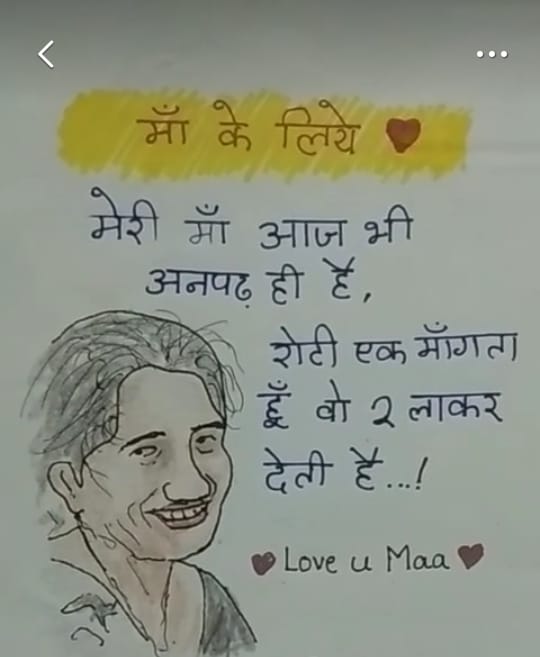 माँ के लिये ❤
मेरी माँ आज भी
अनपढ़ ही है,
रोटी एक माँगता
हूँ वो 2 लाकर
देती है...!
❤ Love u Maa ❤